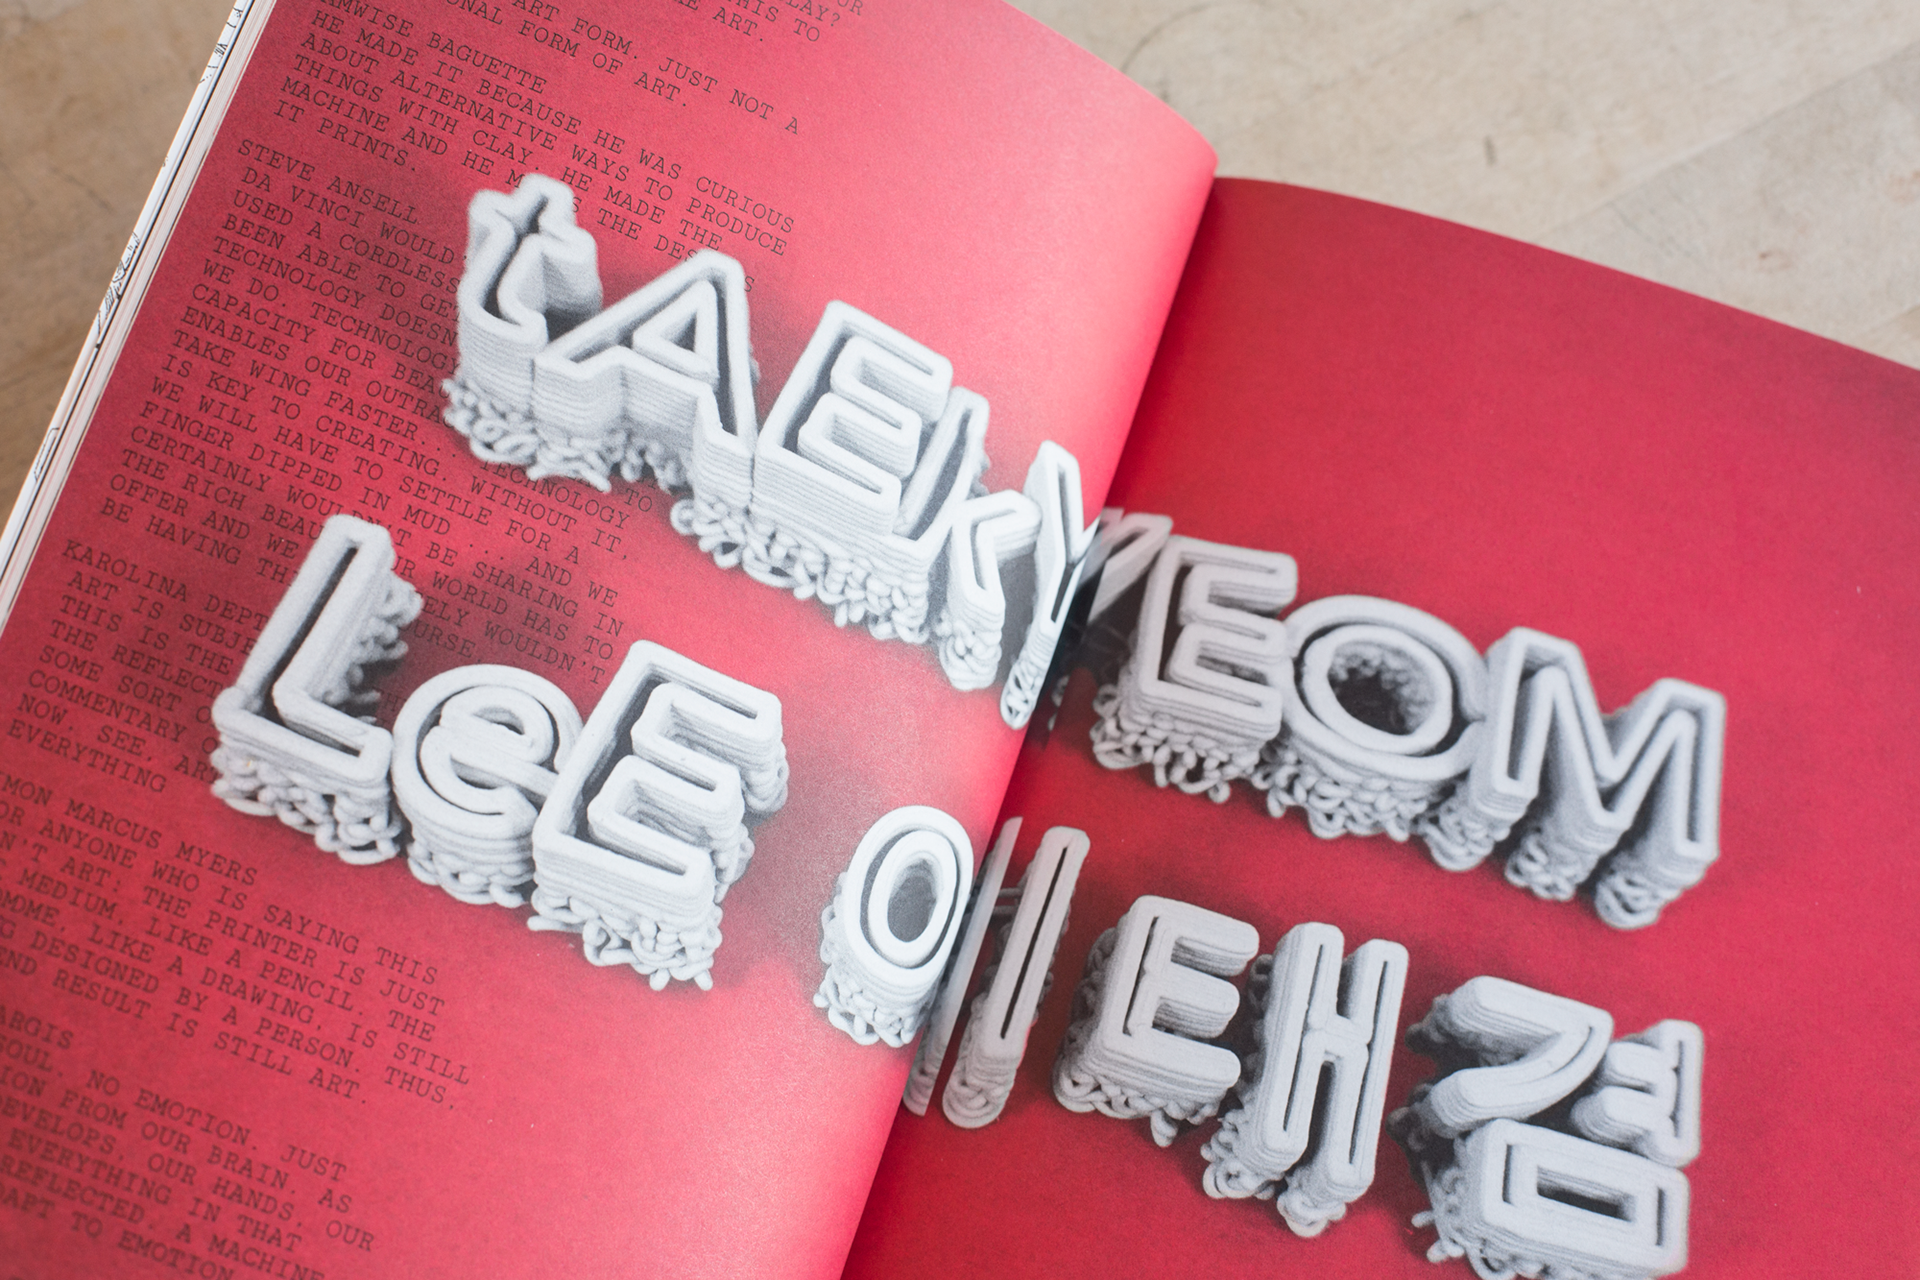 THIS TO
ART FORM. JUST NOT A
FORM OF ART.
BAGUETTE
HE MADE IT BECAUSE HE WAS CURIOUS
ABOUT ALTERNATIVE WAYS TO PRODUCE
THINGS WITH CLAY. HE MADE THE
MACHINE AND HE THE
IT PRINTS.
STEVE ANSELL
DA VINCI WOULD
USED A CORDLESS
BEEN ABLE TO
TECHNOLOGY
WE DO. TECHNOLOGY
CAPACITY FOR
ENABLES OUR
TAKE WING FASTER. TECHNOLOGY
IS KEY TO CREATING. WITHOUT IT,
WE WILL HAVE TO SETTLE FOR A
FINGER DIPPED IN MUD ... AND WE
CERTAINLY WOULDN'T BE SHARING IN
THE RICH WORLD HAS TO
OFFER AND WE WOULDN'T
BE HAVING
KAROLINA
ART IS
THIS IS THE
THE
SOME SORT
COMMENTARY
NOW. SEE, ART
EVERYTHING
MARCUS MYERS
ANYONE WHO IS SAYING THIS
ART: THE PRINTER IS JUST
MEDIUM, LIKE A PENCIL. THE
LIKE A DRAWING, IS STILL
DESIGNED BY A PERSON. THUS,
RESULT IS STILL ART.
NO EMOTION. JUST
FROM OUR BRAIN. AS
OUR HANDS, OUR
EVERYTHING IN THAT
A MACHINE
TO EMOTION
tAEkYEOM
LeE 이태겸